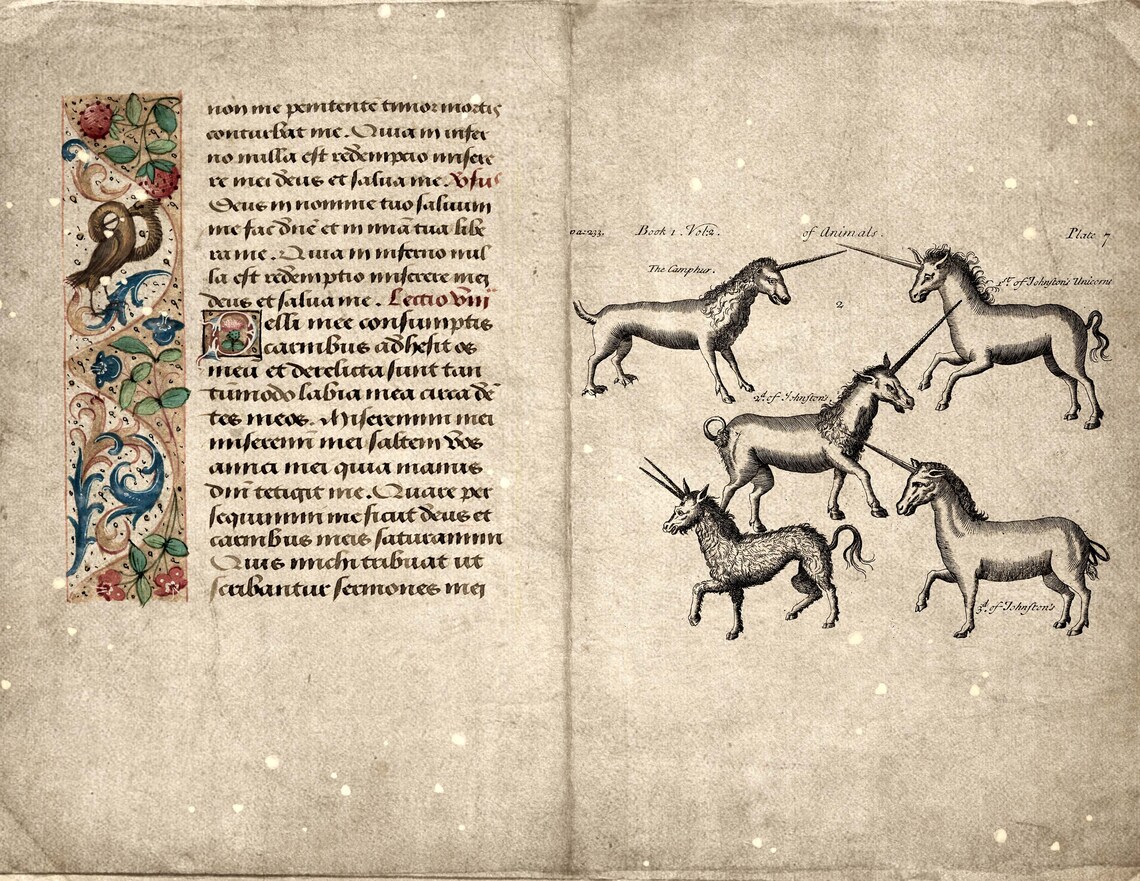 non me penitentē timor mortis
conturbat me. Quia in infer
no nulla est redēmpcio misere
re mei deus et salua me. Vsus
Deus in nomine tuo saluum
me fac dn̄e et in uirtute tua libe
ra me. Quia in inferno nul
la est redēmptio miserere mei
deus et salua me. Lectio viii
Pelli mee consumptis
carnibus adhesit os
meū et derelicta sunt tan
tūmodo labia mea circa dē
tes meos. Miseremini mei
miseremī mei saltem vos
amici mei quia manus
dn̄i tetigit me. Quare per
sequimini me sicut deus et
carnibus meis saturamini
Quis michi tribuat ut
scribantur sermones mei
pag: 233. Book 1. Vol: 2. of Animals. Plate 7
The Camphur.
1st. of Johnston's Unicorns
2
2d. of Johnstons.
3d. of Johnston's